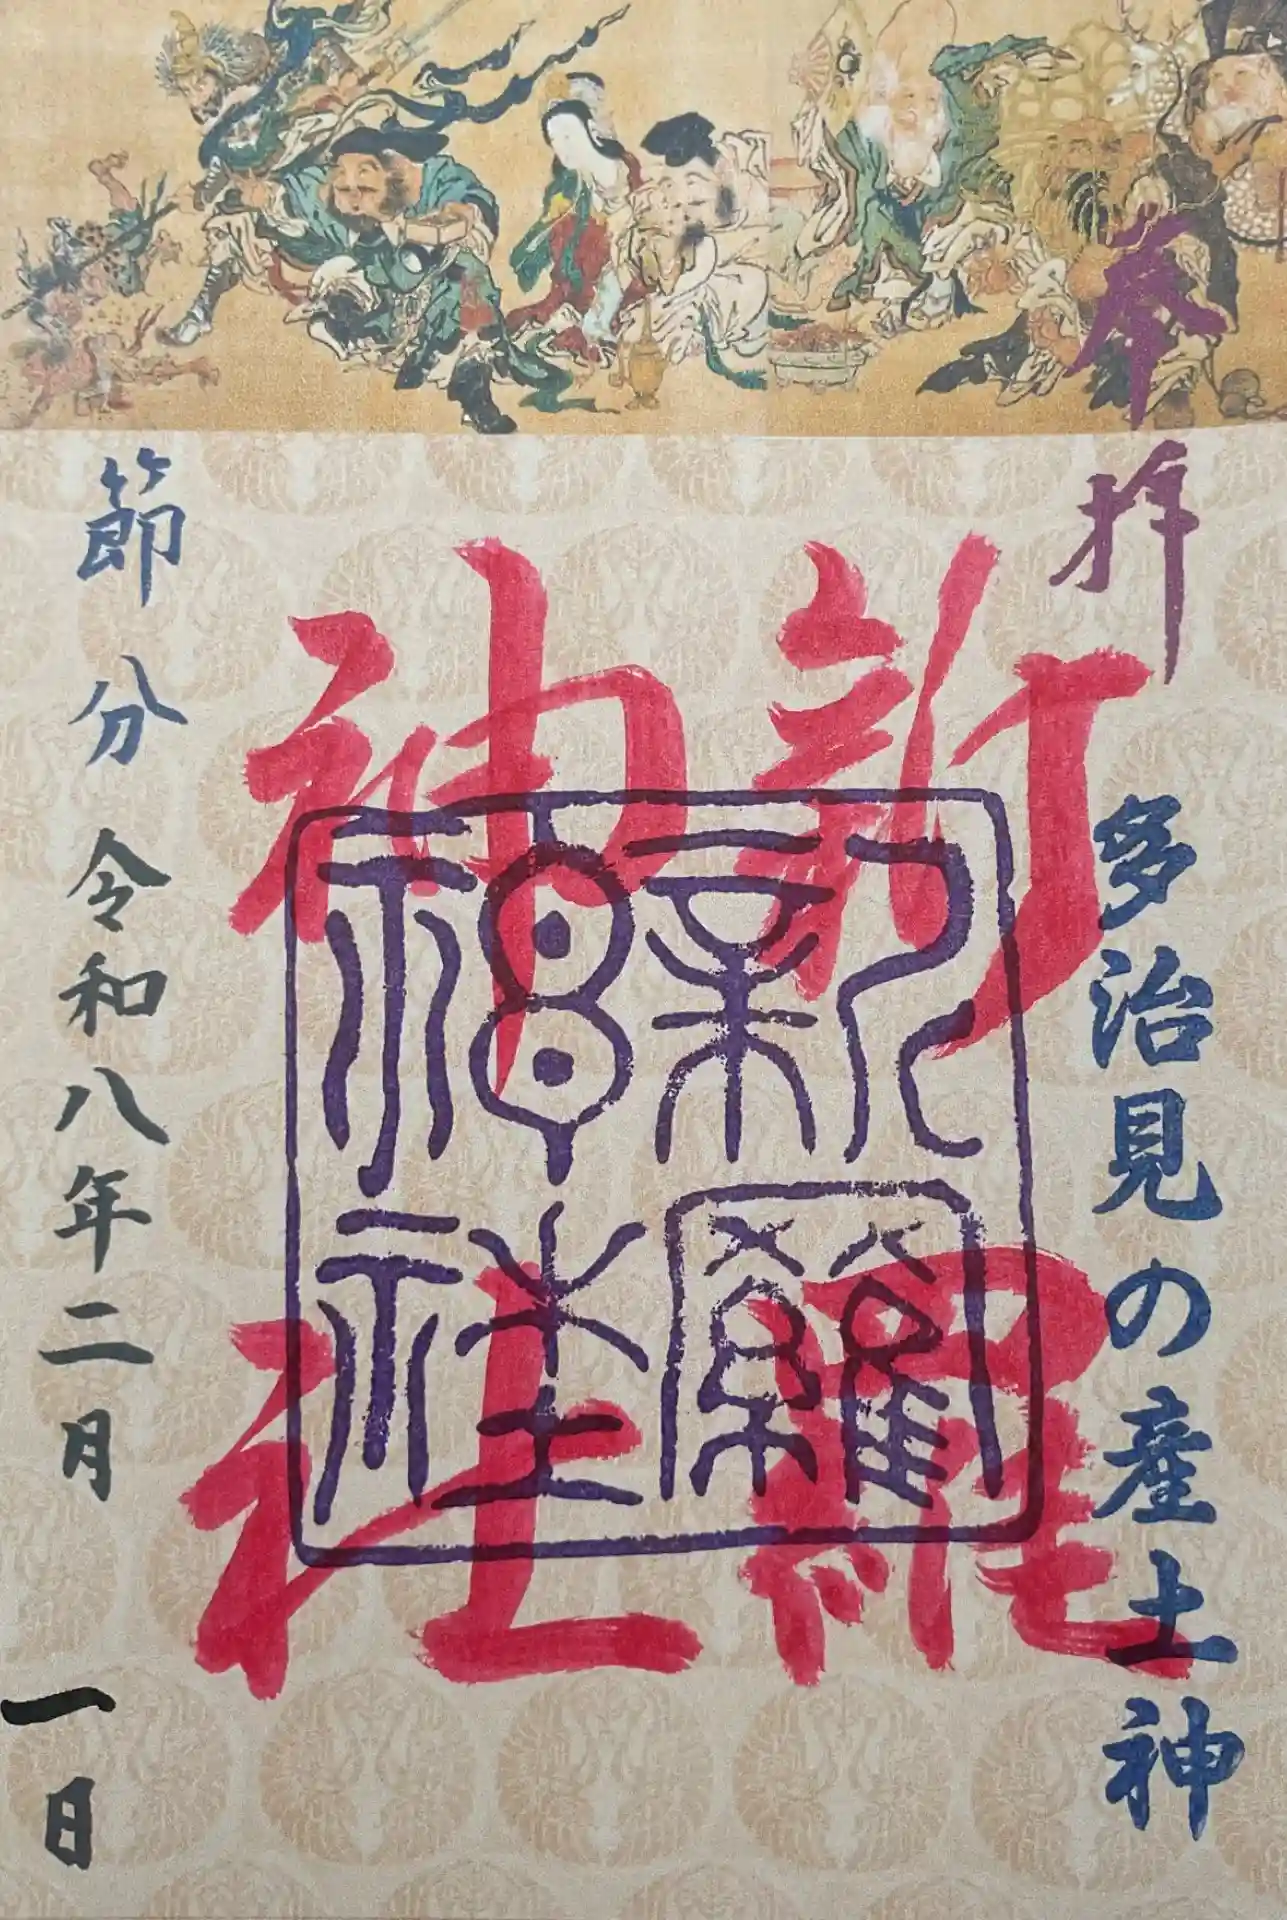 奉拝
多治見の産土神
新羅
神社
新羅
神社
節分
令和八年二月一日